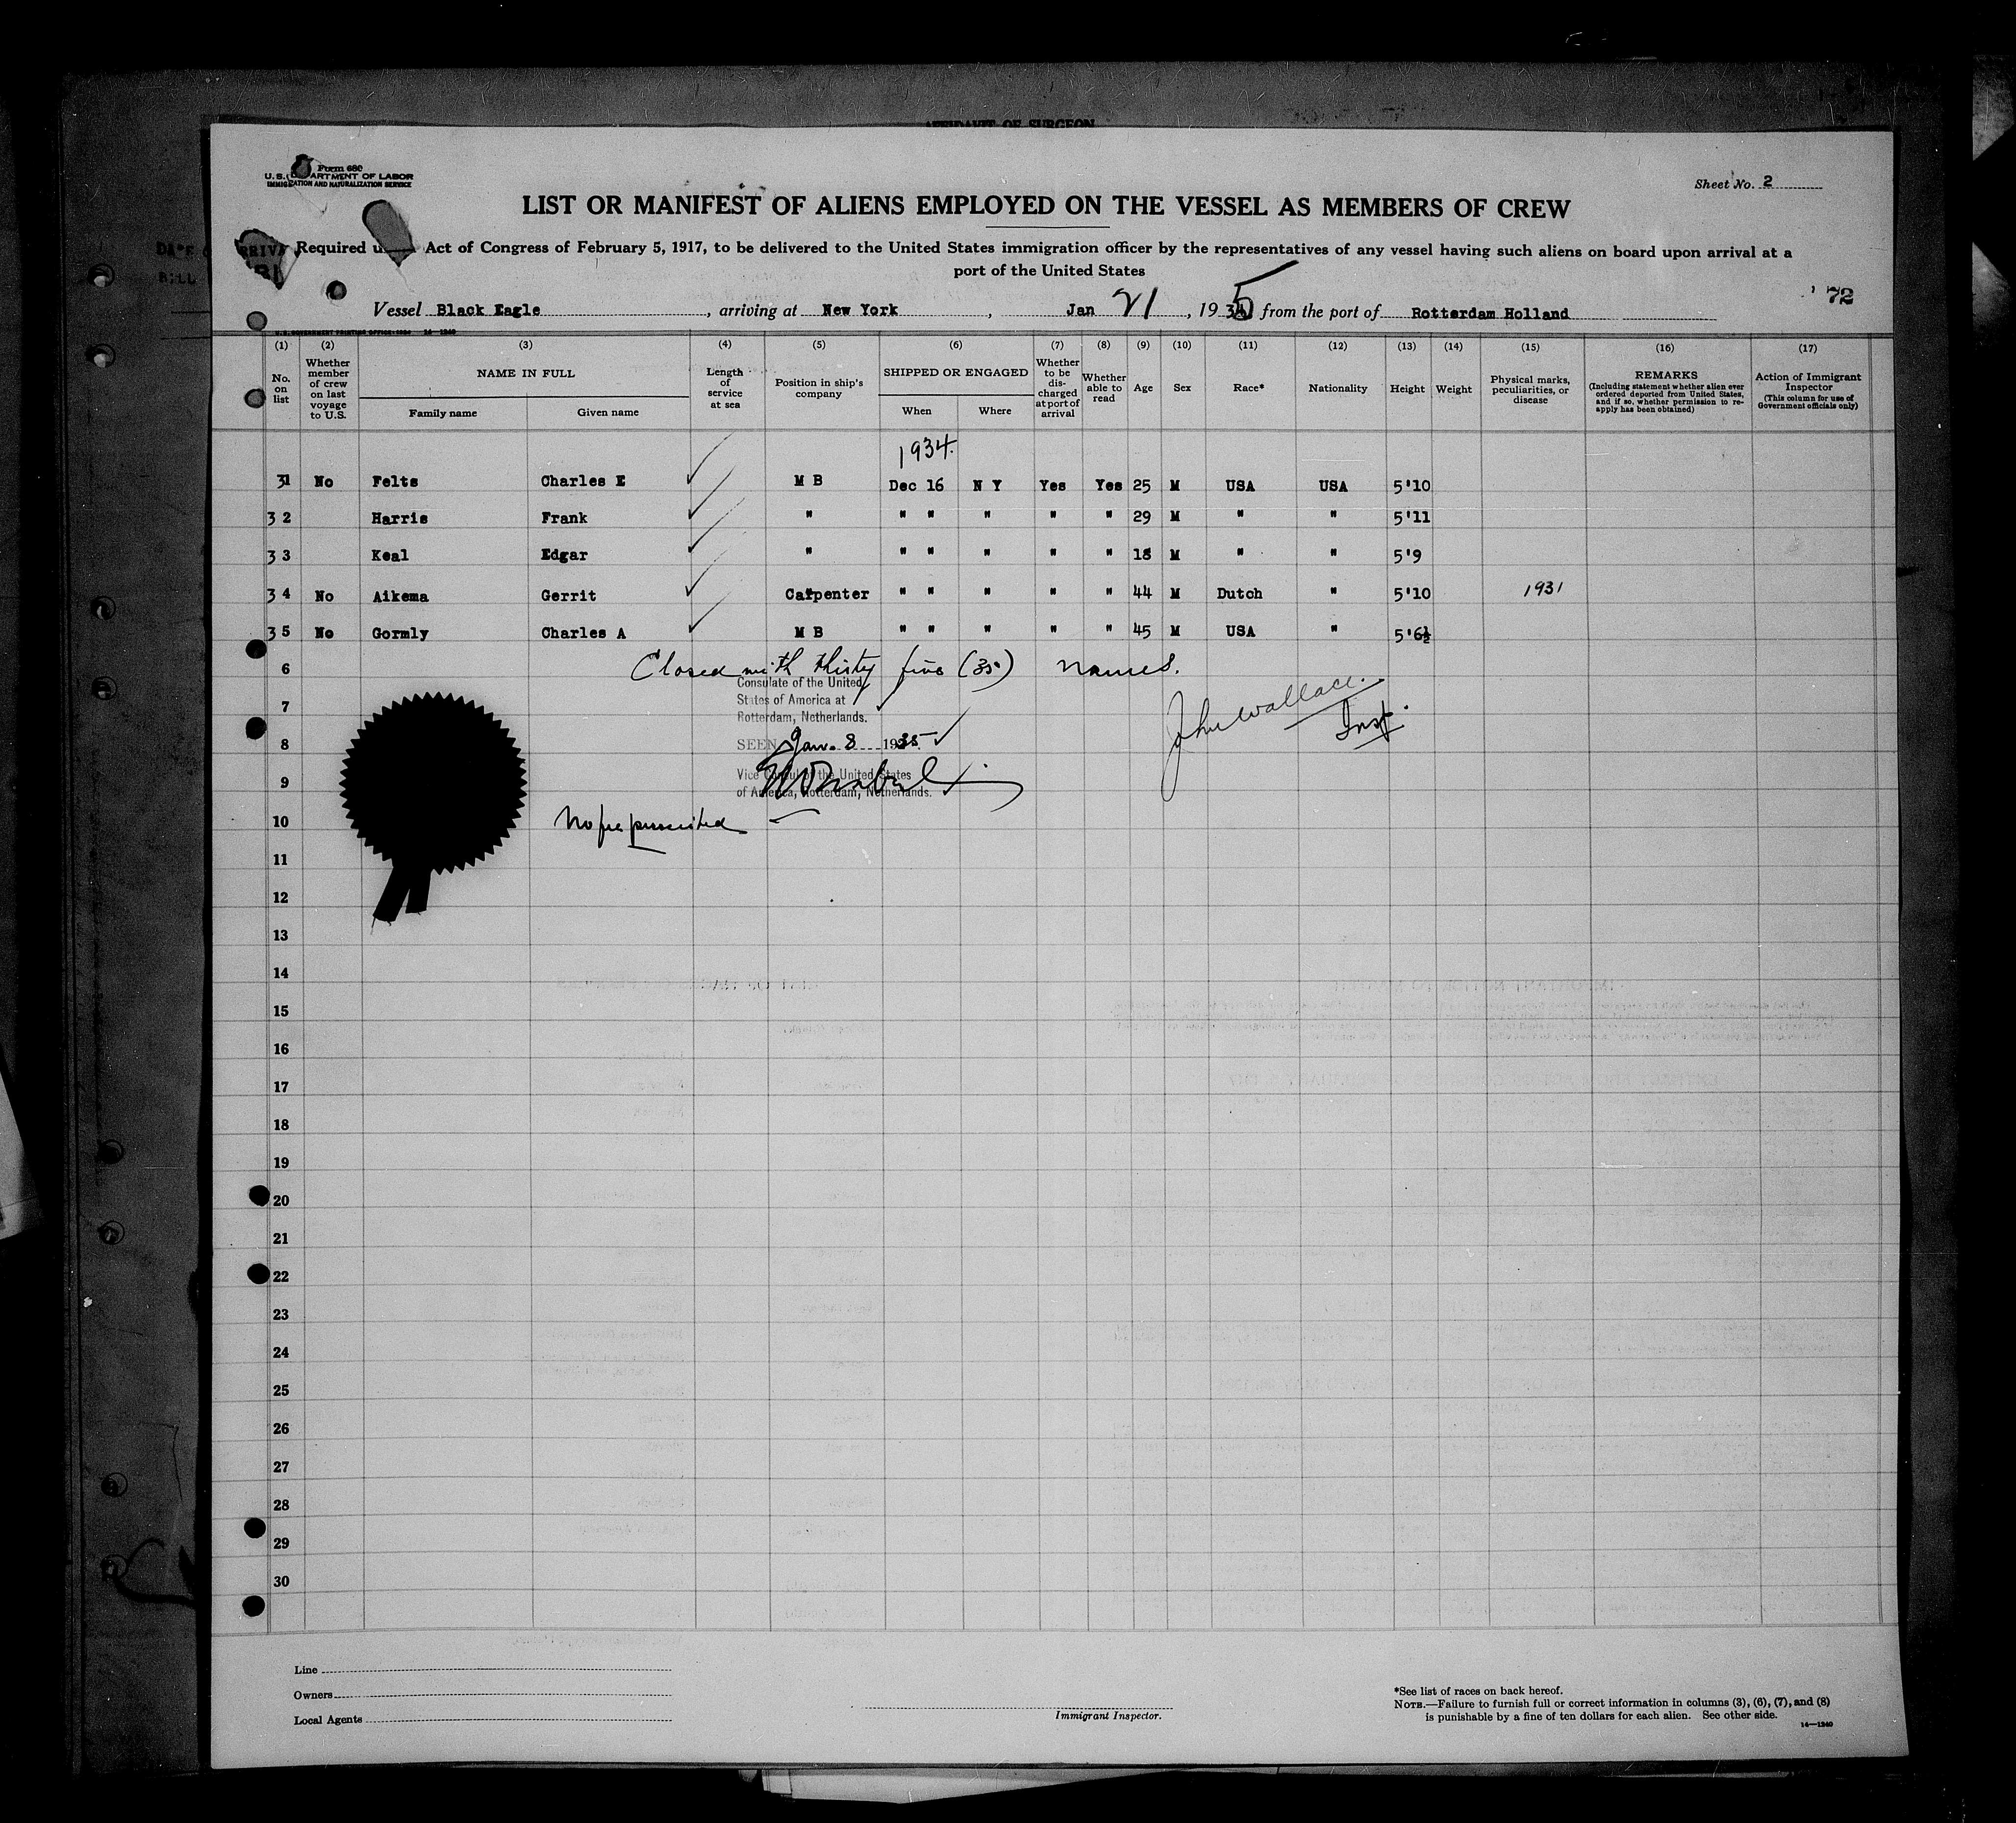 AFFIDAVIT OF SURGEON
Form 680
U.S. DEPARTMENT OF LABOR
IMMIGRATION AND NATURALIZATION SERVICE
Sheet No. 2
LIST OR MANIFEST OF ALIENS EMPLOYED ON THE VESSEL AS MEMBERS OF CREW
Required Act of Congress of February 5, 1917, to be delivered to the United States immigration officer by the representatives of any vessel having such aliens on board upon arrival at a
port of the United States
'72
Vessel Black Eagle, arriving at New York, Jan 21, 1935 from the port of Rotterdam Holland
(1) (2) (3) (4) (5) (6) (7) (8) (9) (10) (11) (12) (13) (14) (15) (16) (17)
No. on list
Whether member of crew on last voyage to U.S.
NAME IN FULL
Family name
Given name
Length of service at sea
Position in ship's company
SHIPPED OR ENGAGED
When
Where
Whether to be discharged at port of arrival
Whether able to read
Age
Sex
Race*
Nationality
Height
Weight
Physical marks, peculiarities, or disease
REMARKS
(Including statement whether alien ever ordered deported from United States, and if so, whether permission to reapply has been obtained)
Action of Immigrant Inspector
(This column for use of Government officials only)
1934.
31 No Felts Charles E M B Dec 16 N Y Yes Yes 25 M USA USA 5'10
32 Harris Frank " " " " " " 29 M " " 5'11
33 Keal Edgar " " " " " " 18 M " " 5'9
34 No Aikema Gerrit Carpenter " " " " " 44 M Dutch " 5'10 1931
35 No Gormly Charles A M B " " " " " 45 M USA " 5'6½
6 Closed with thirty five (35) names.
Consulate of the United
States of America at
7 Rotterdam, Netherlands.
John Wallace.
Insp.
8 SEEN Jan. 8 1935
Vice Consul of the United States
9 of America, Rotterdam, Netherlands.
10 No fee prescribed
11
12
13
14
15
16
17
18
19
20
21
22
23
24
25
26
27
28
29
30
Line
Owners
Local Agents
Immigrant Inspector.
*See list of races on back hereof.
NOTE.—Failure to furnish full or correct information in columns (3), (6), (7), and (8)
is punishable by a fine of ten dollars for each alien. See other side.
14—1240